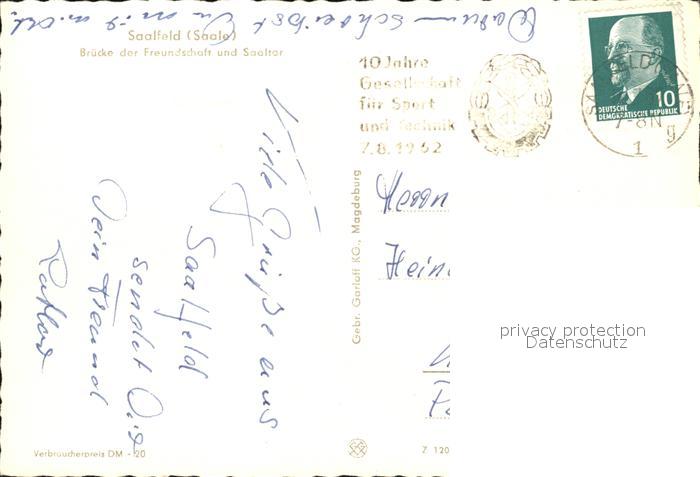 Warum schreibst Du mir nicht
Saalfeld (Saale)
Brücke der Freundschaft und Saaltor
10 Jahre
Gesellschaft
für Sport
und Technik
7.8.1962
DEUTSCHE
DEMOKRATISCHE REPUBLIK
10
SAALFELD
7-8N
1
g
Viele Grüße aus
Saalfeld
sendet Dir
Dein Freund
Gebr. Garloff KG., Magdeburg
Herrn
Hein
privacy protection
Datenschutz
Verbraucherpreis DM -20
Z 120